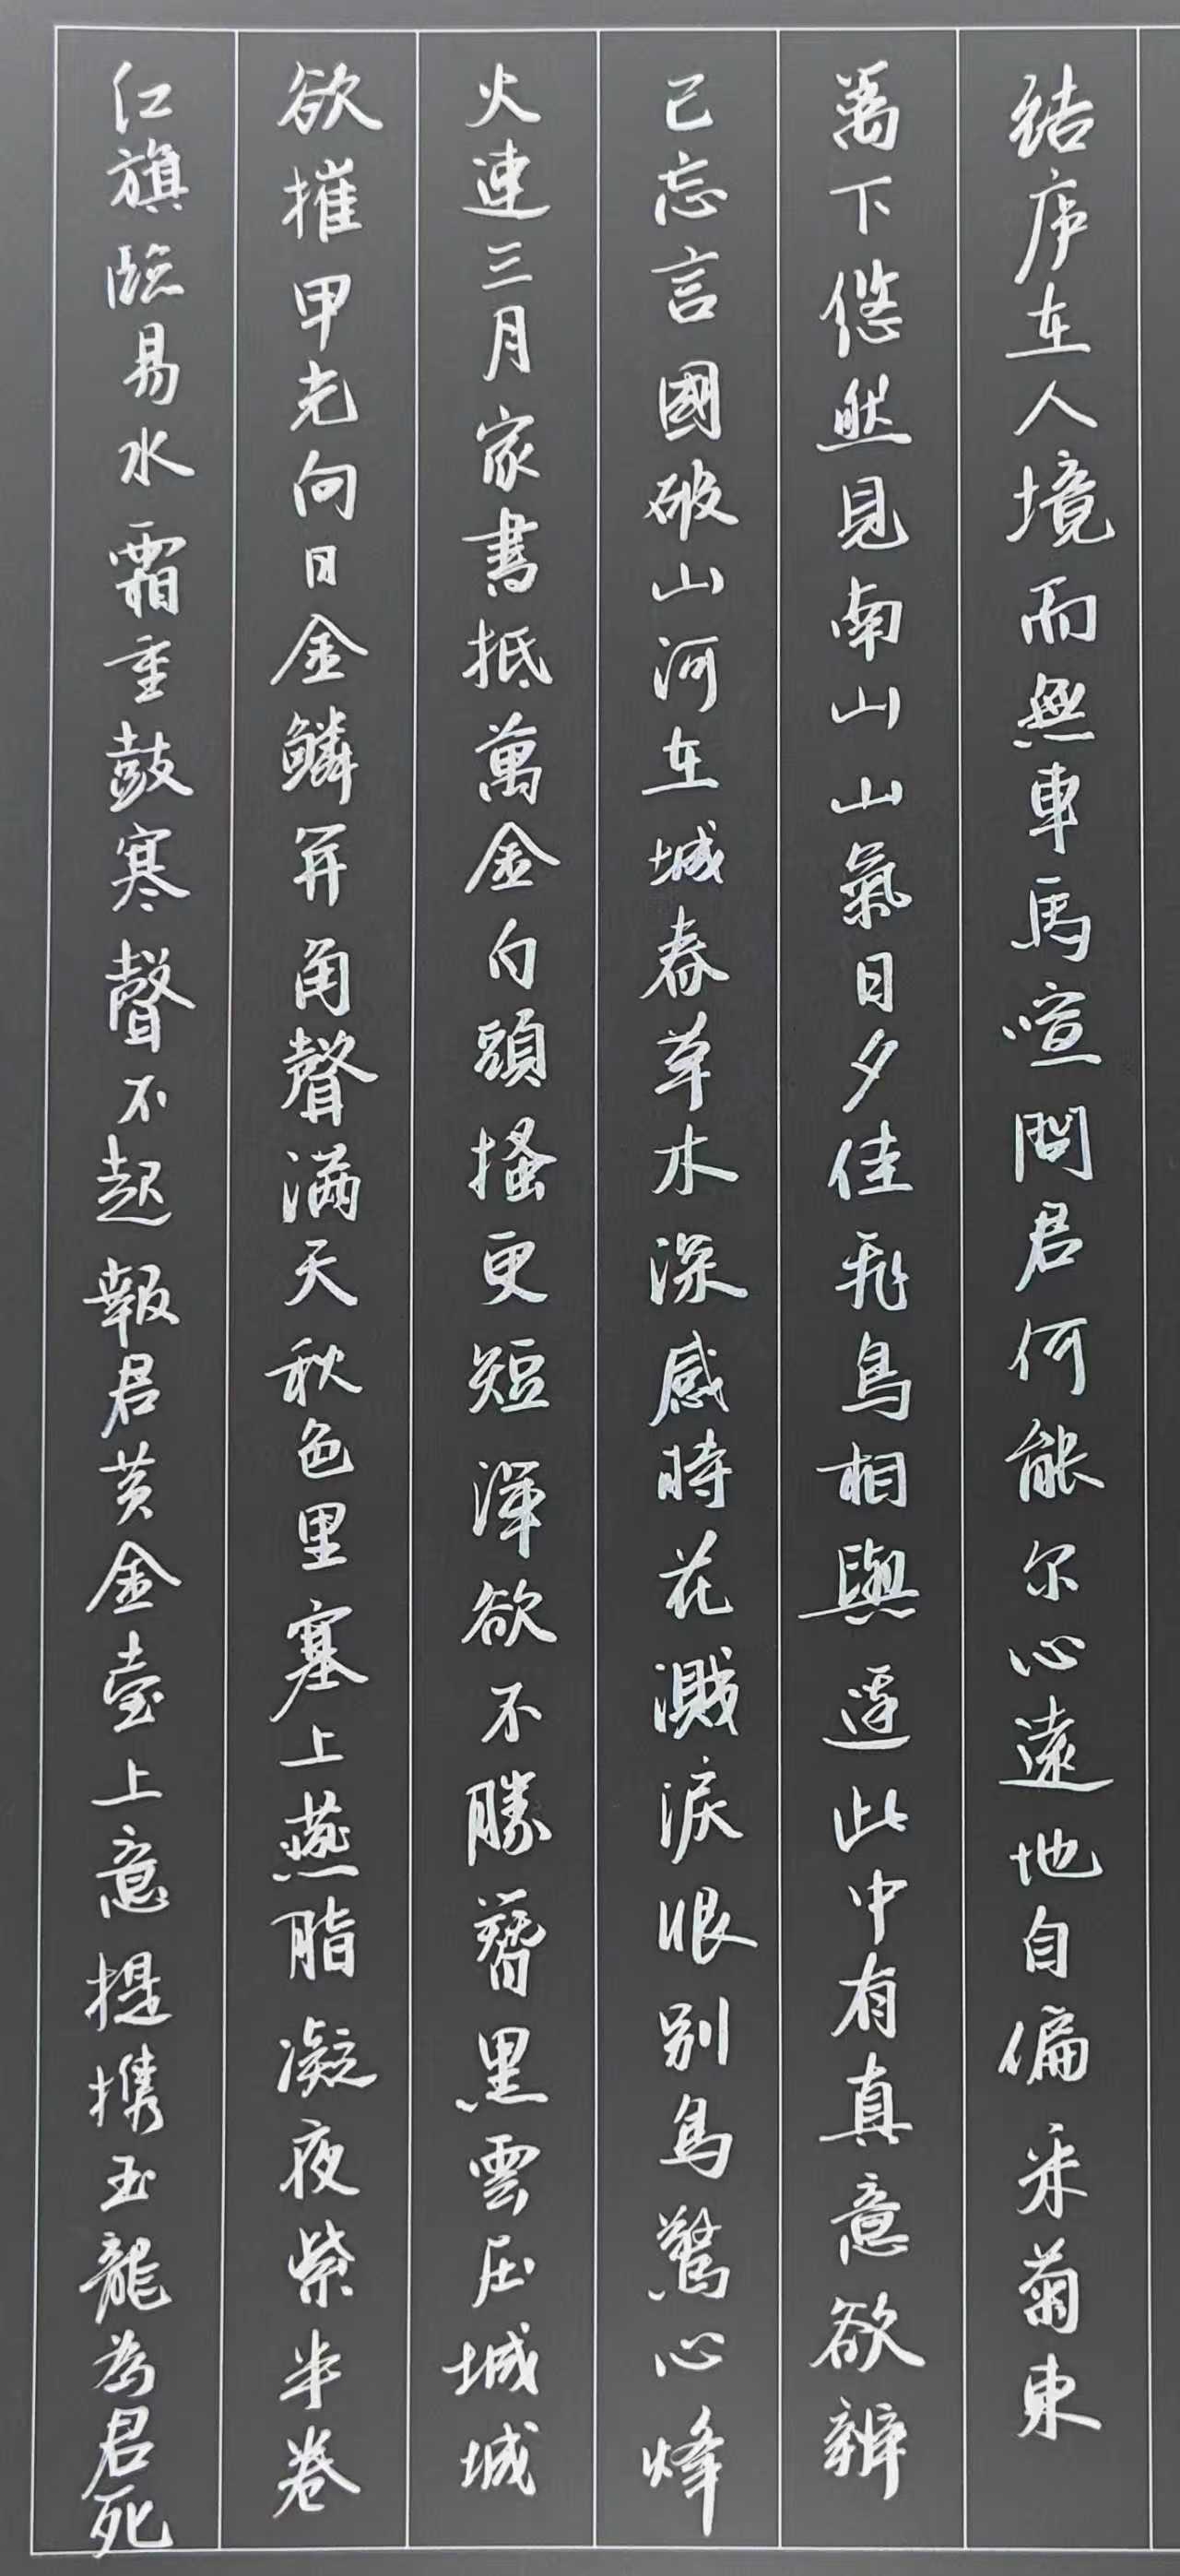 结庐在人境而無車馬喧問君何能尔心遠地自偏采菊東
篱下悠然見南山山氣日夕佳飛鳥相與還此中有真意欲辨
已忘言國破山河在城春草木深感時花溅淚恨别鳥驚心烽
火連三月家書抵萬金白頭搔更短渾欲不勝簪黑雲压城城
欲摧甲光向日金鱗开角聲满天秋色里塞上燕脂凝夜紫半卷
红旗臨易水霜重鼓寒聲不起報君黄金臺上意提携玉龍為君死